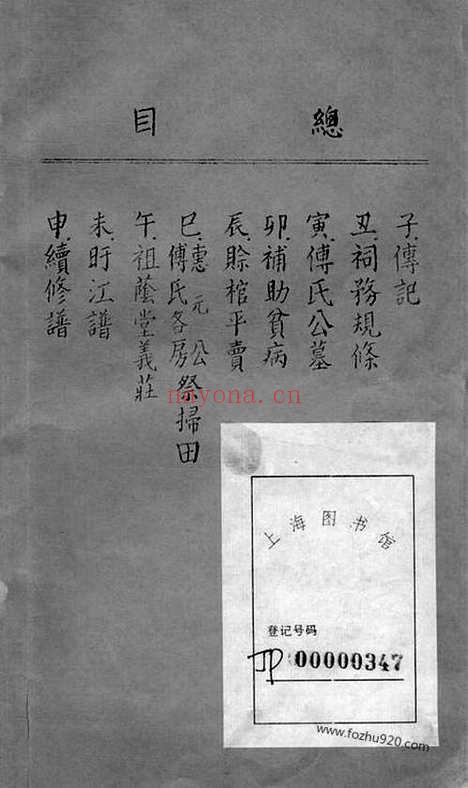 總目
子、傳記
丑、祠務規條
寅、傅氏公墓
卯、補助貧病
辰、賒棺平賣
巳、惠元公
傅氏各房
祭掃田
午、祖蔭堂義莊
未、盱江譜
申、續修譜
nayona.cn
上海图书馆
登记号码
JP 00000347
www.fozhu920.com